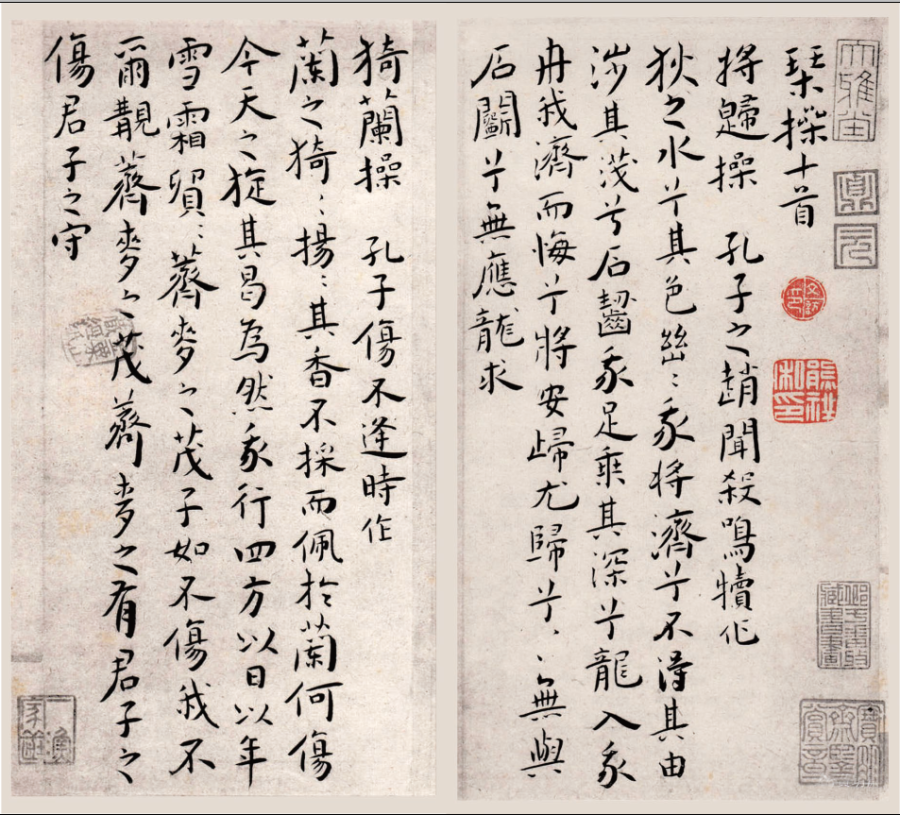 琹操十首
將歸操　孔子之趙聞殺鳴犢作
狄之水兮其色幽〻我將濟兮不得其由
涉其淺兮石齧我足乘其深兮龍入我
舟我濟而悔兮將安歸尤歸兮〻無與
石鬭兮無應龍求
猗蘭操　孔子傷不逢時作
蘭之猗〻揚〻其香不採而佩於蘭何傷
今天之旋其曷為然我行四方以日以年
雪霜貿〻薺麥之茂子如不傷我不
爾覯薺麥之茂薺麥之有君子之
傷君子之守